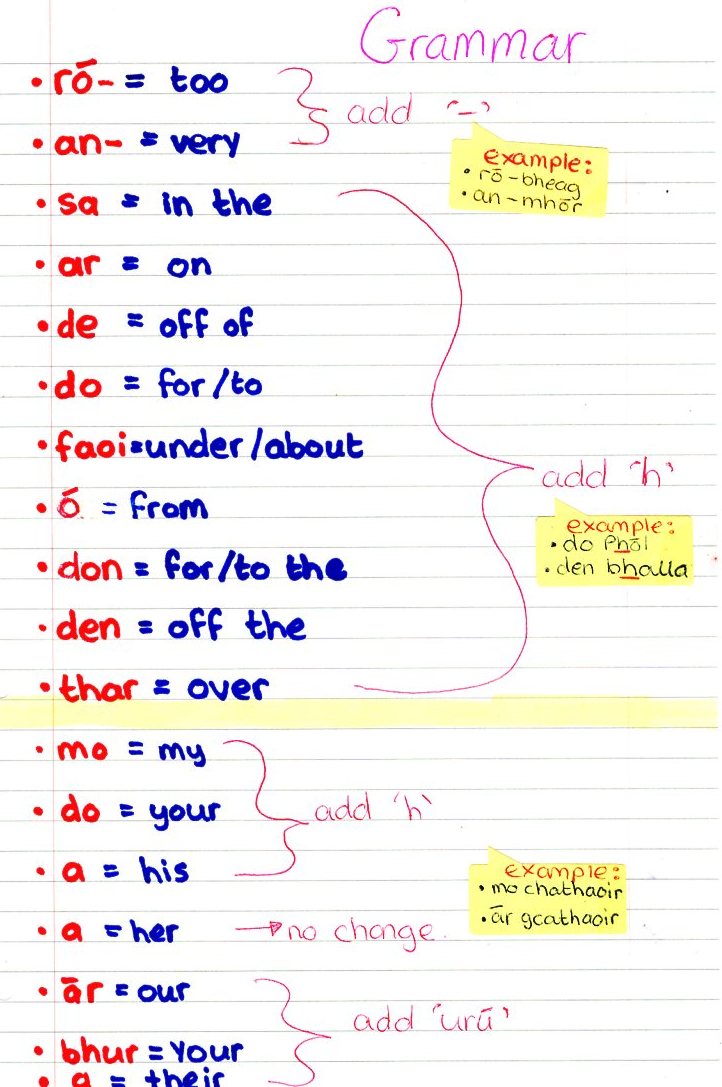 Grammar
• ró- = too
add '-'
• an- = very
example:
• ró-bheag
• an-mhór
• sa = in the
• ar = on
• de = off of
• do = for/to
• faoi=under/about
add 'h'
• ó = from
example:
• do Phól
• den bhalla
• don = for/to the
• den = off the
• thar = over
• mo = my
• do = your
add 'h'
• a = his
example:
• mo chathaoir
• ár gcathaoir
• a = her → no change
• ár = our
add 'urú'
• bhur = Your
• a = their